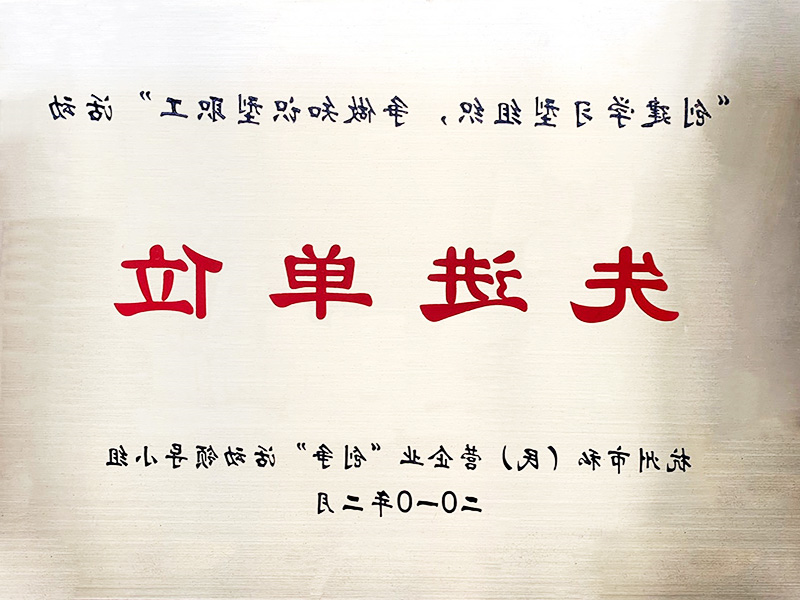 “创建学习型组织，争做知识型职工”活动
先进单位
杭州市私（民）营企业“创争”活动领导小组
二〇一〇年二月